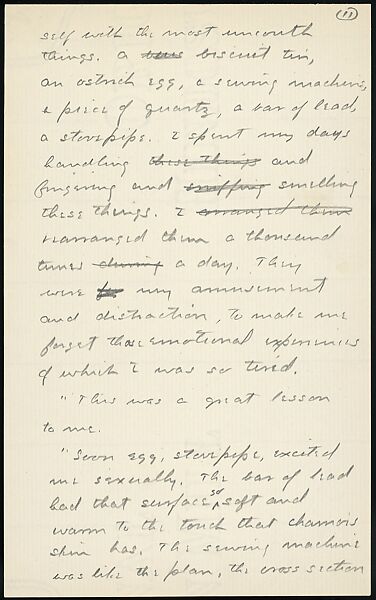 (11)
self with the most uncouth
things. A biscuit tin,
an ostrich egg, a sewing machine,
a piece of quartz, a bar of lead,
a stovepipe. I spent my days
handling these things and
fingering and sniffing smelling
these things. I arranged them
rearranged them a thousand
times during a day. They
were my amusement
and distraction, to make me
forget those emotional experiences
of which I was so tired.
"This was a great lesson
to me.
"Soon egg, stovepipe, excited
me sexually. The bar of lead
had that surface so soft and
warm to the touch that chamois
skin has. The sewing machine
was like the plan, the cross section